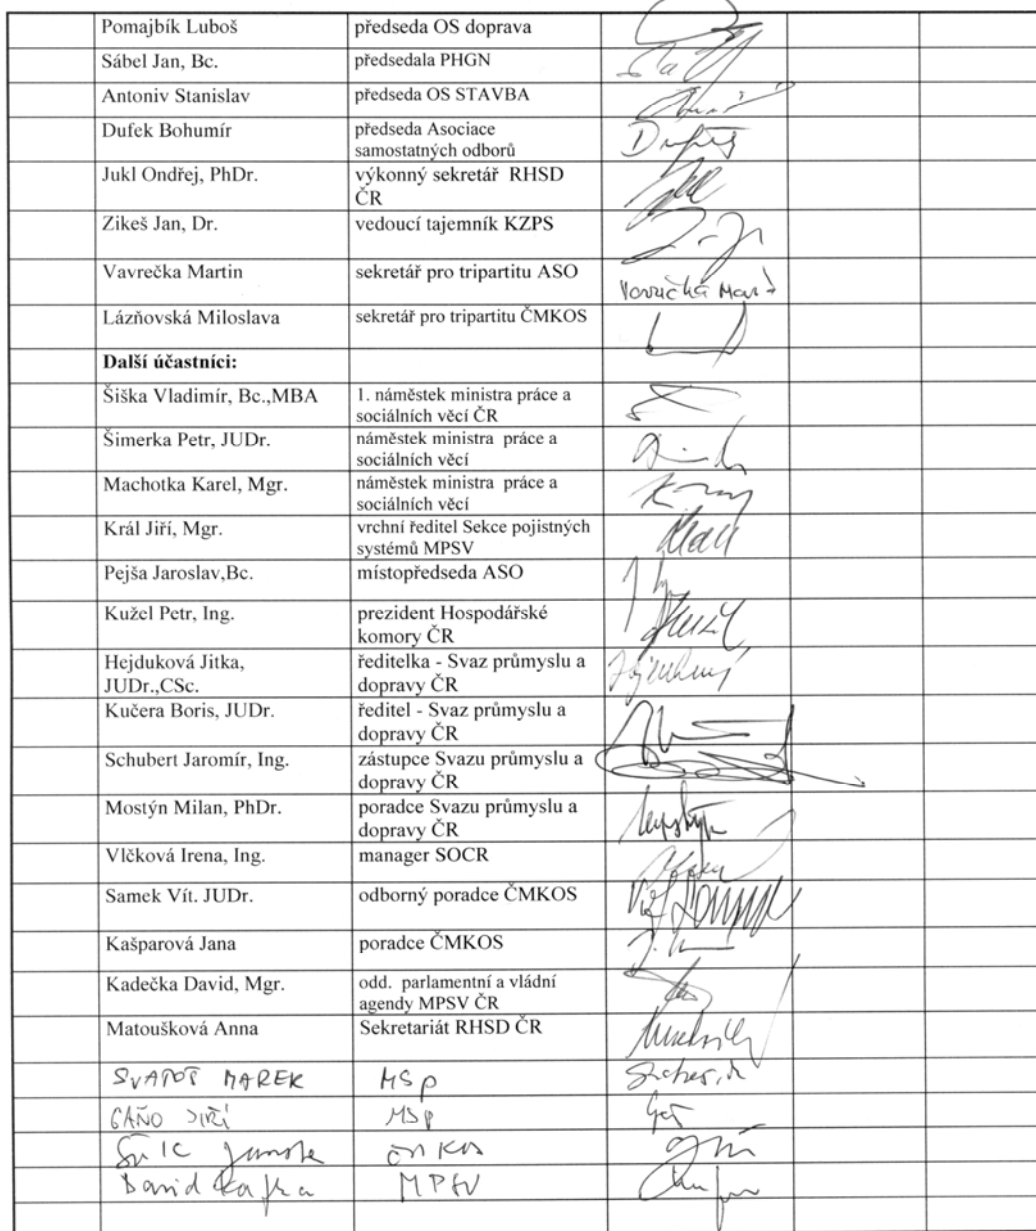 Pomajbík Luboš předseda OS doprava
Sábel Jan, Bc. předsedala PHGN
Antoniv Stanislav předseda OS STAVBA
Dufek Bohumír předseda Asociace
samostatných odborů
Jukl Ondřej, PhDr. výkonný sekretář RHSD
ČR
Zikeš Jan, Dr. vedoucí tajemník KZPS
Vavrečka Martin sekretář pro tripartitu ASO
Lázňovská Miloslava sekretář pro tripartitu ČMKOS
Další účastníci:
Šiška Vladimír, Bc.,MBA 1. náměstek ministra práce a
sociálních věcí ČR
Šimerka Petr, JUDr. náměstek ministra práce a
sociálních věcí
Machotka Karel, Mgr. náměstek ministra práce a
sociálních věcí
Král Jiří, Mgr. vrchní ředitel Sekce pojistných
systémů MPSV
Pejša Jaroslav,Bc. místopředseda ASO
Kužel Petr, Ing. prezident Hospodářské
komory ČR
Hejduková Jitka, ředitelka - Svaz průmyslu a
JUDr.,CSc. dopravy ČR
Kučera Boris, JUDr. ředitel - Svaz průmyslu a
dopravy ČR
Schubert Jaromír, Ing. zástupce Svazu průmyslu a
dopravy ČR
Mostýn Milan, PhDr. poradce Svazu průmyslu a
dopravy ČR
Vlčková Irena, Ing. manager SOCR
Samek Vít. JUDr. odborný poradce ČMKOS
Kašparová Jana poradce ČMKOS
Kadečka David, Mgr. odd. parlamentní a vládní
agendy MPSV ČR
Matoušková Anna Sekretariát RHSD ČR
SVATOŠ MAREK MSp
GAŇO JIŘÍ MSp
ČMKOS
David Kafka MPSV